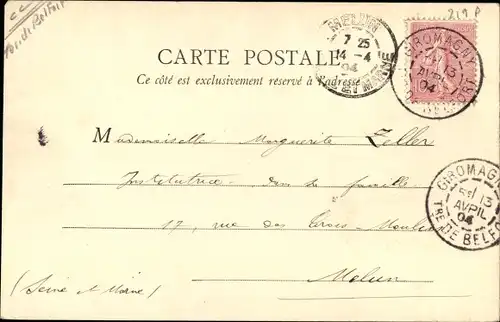 cc
Ter. de Belfort
219 P
MELUN
7 25
14 - 4
04
SEINE ET MARNE
GIROMAGNY
13
AVRIL
04
CARTE POSTALE
Ce côté est exclusivement réservé à l'adresse
Mademoiselle Marguerite Zeller
Institutrice dans sa famille
17, rue des Trois-Moulins
Melun
(Seine et Marne)
GIROMAGNY
13
AVRIL
04
TRE DE BELFORT